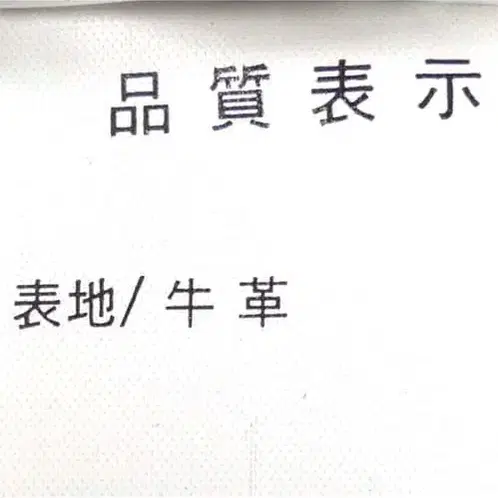 品質表示
表地/牛革